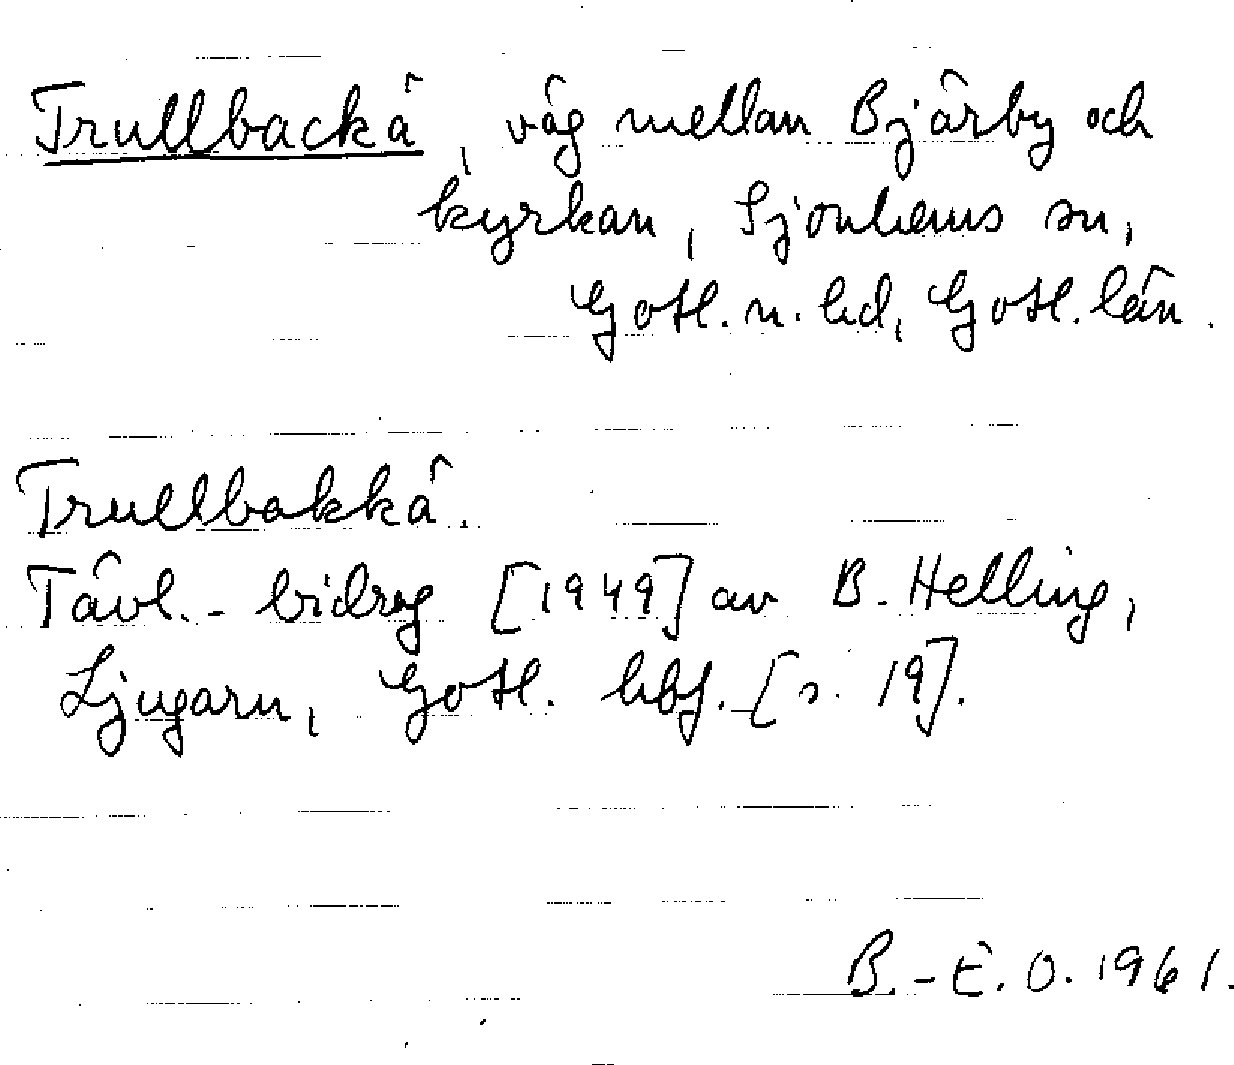 Trullbackä, väg mellan Bjärby och
kyrkan, Sjonhems sn,
Gotl. n. hd, Gotl. län.
Trullbakkä.
Tävl.-bidrag [1949] av B. Helling,
Ljugarn, Gotl. hbf. [s. 19].
B.-E. O. 1961.